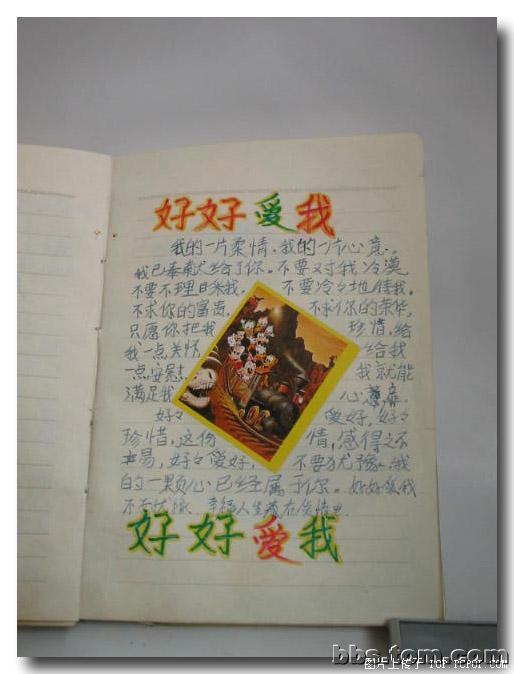 好好爱我
我的一片柔情、我的一片心意。
我已奉献给了你。不要对我冷漠
不要不理日来我。不要冷々地待我。
不求你的富贵, 不求你的荣华,
只愿你把我 珍惜,给
我一点关怀 给我
一点安慰 我就能
满足我 心意
好々 爱好,好々
珍惜,这份 情,感得之不
易,好々爱好, 不要犹豫,我
的一颗心已经属于你。好好爱我
不要犹豫 幸福人生藏在爱情里
好好爱我
bbs.tom.com
图片上传于 ToP.ToFor.com